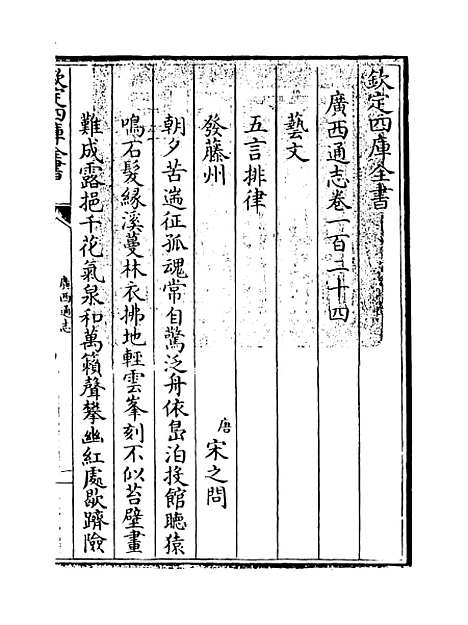 欽定四庫全書
廣西通志卷一百二十四
藝文
五言排律
發藤州
唐
宋之問
朝夕苦遄征孤魂常自驚泛舟依島泊投館聴猿
鳴石髮緣溪蔓林衣拂地輕雲峯刻不似苔壁畫
難成露挹千花氣泉和萬籟聲攀幽紅處歇躋險
欽定四庫全書
廣西通志
一